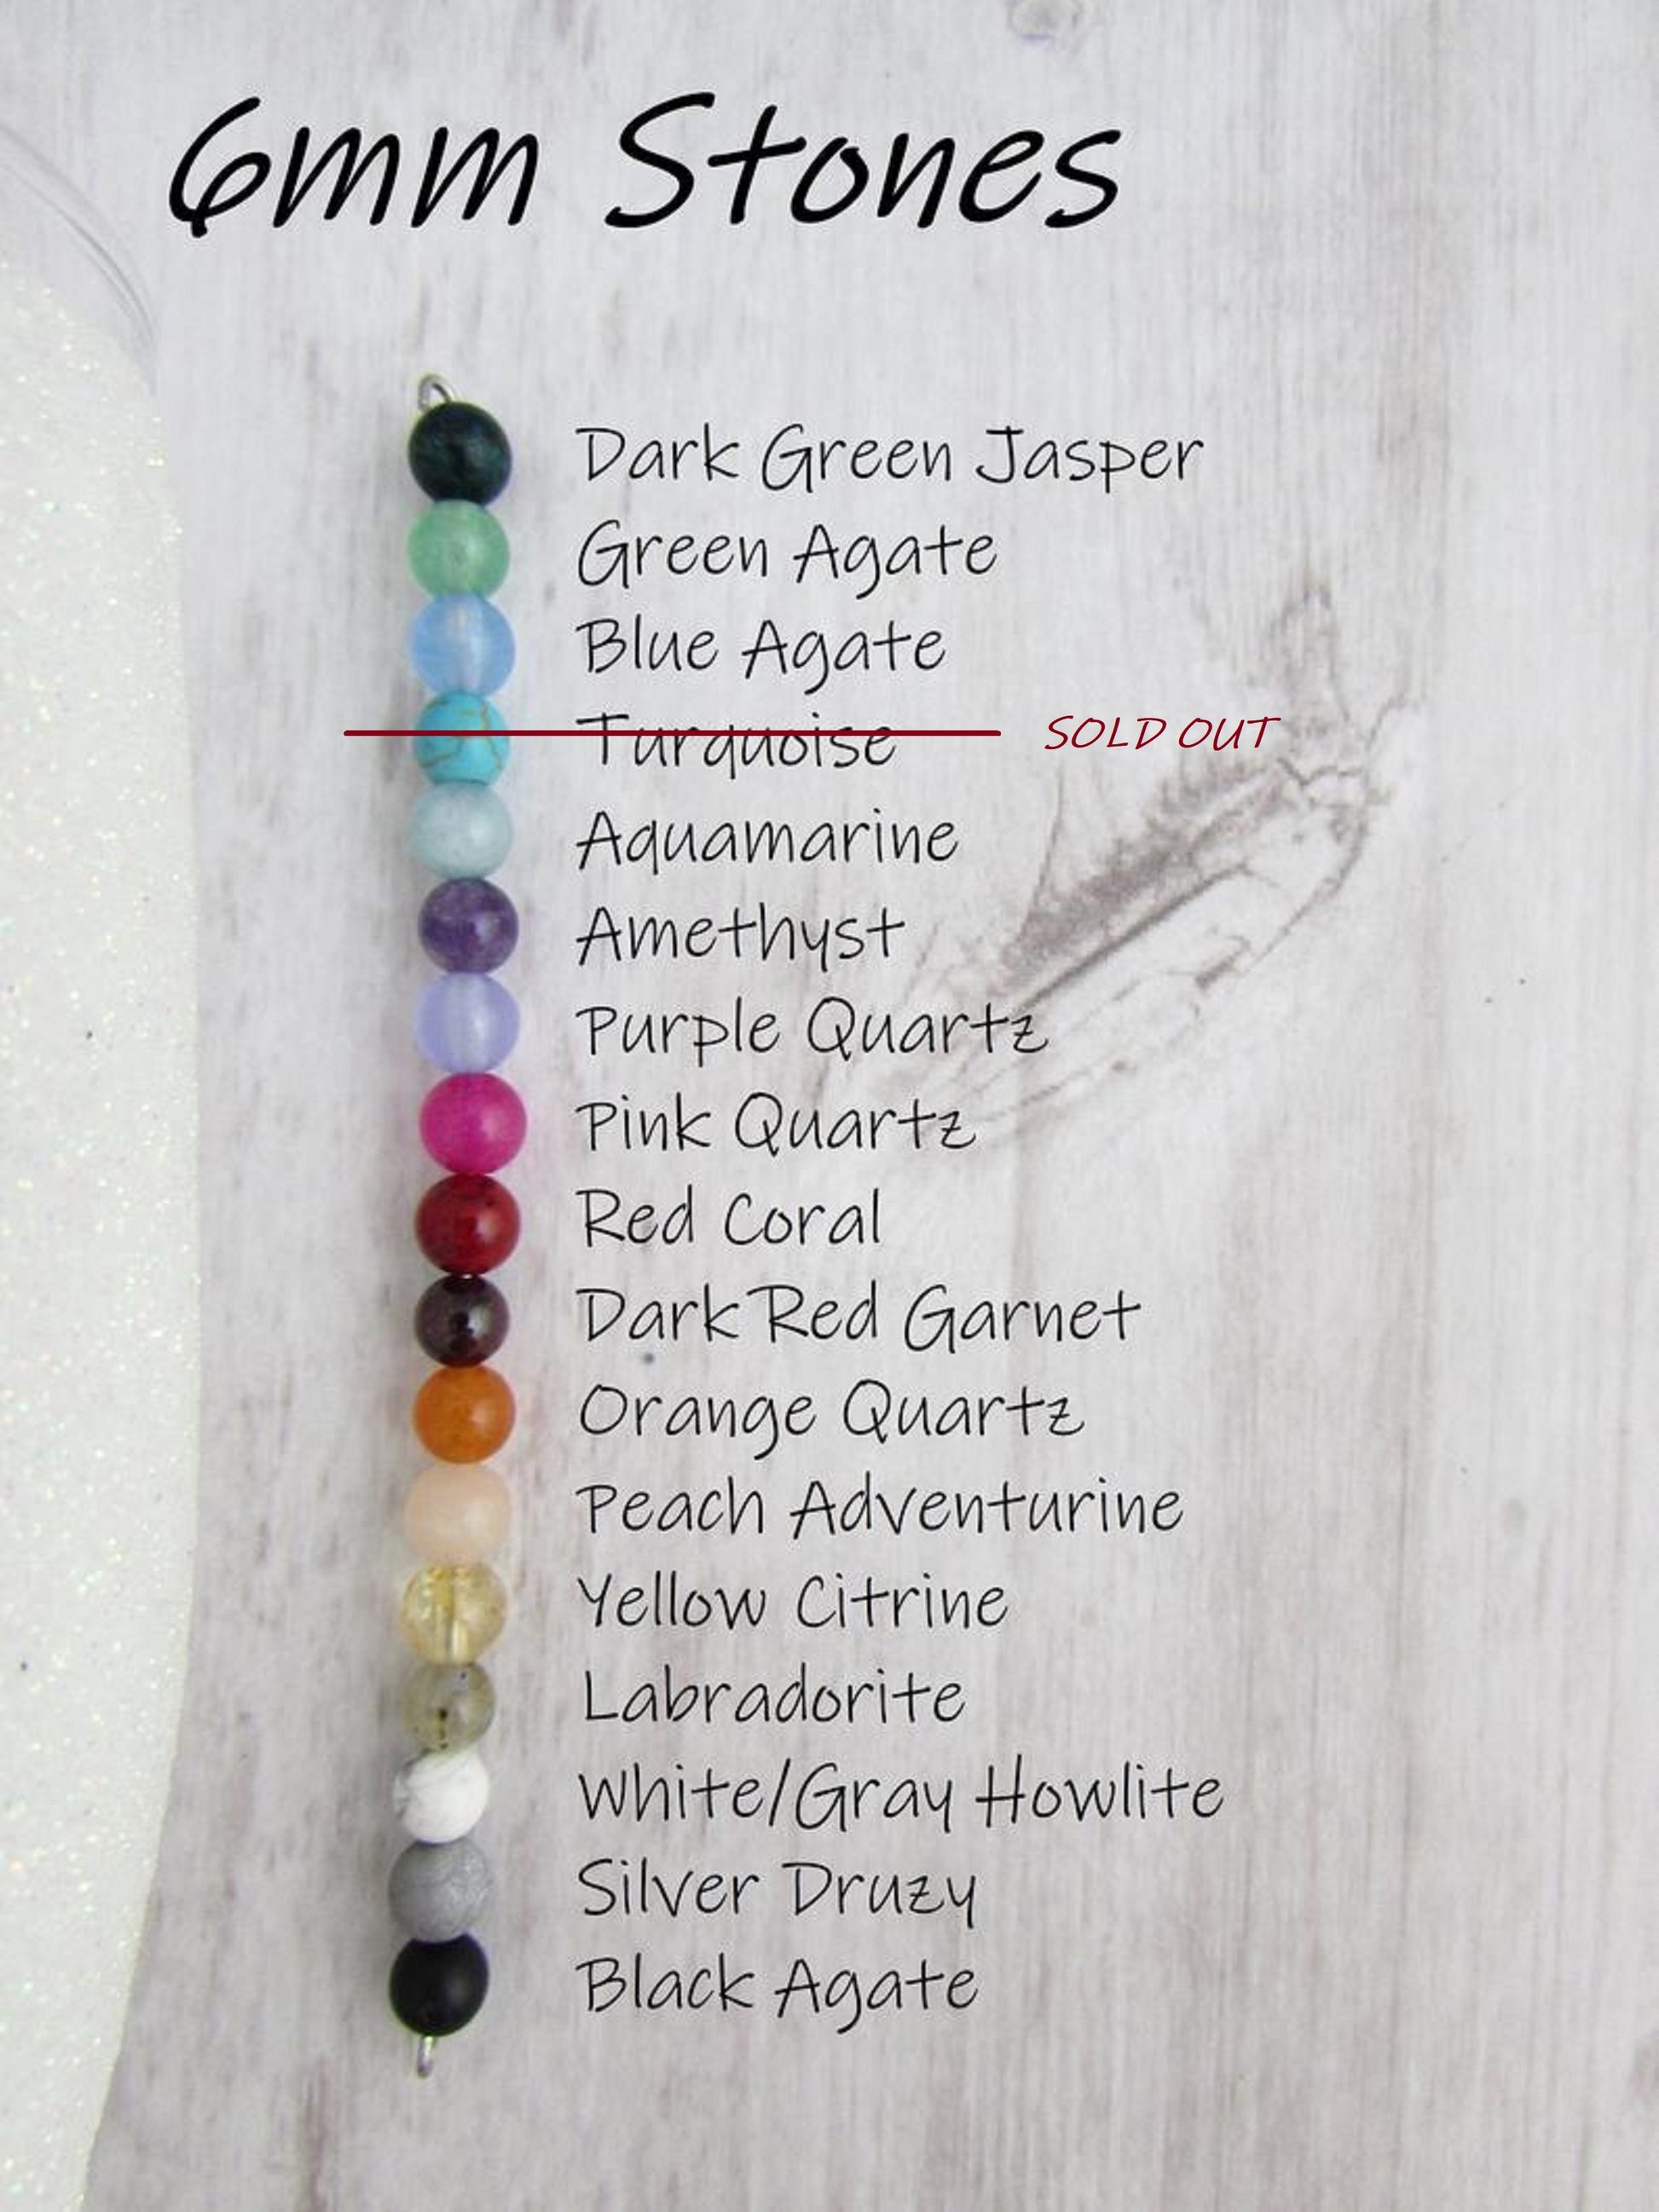 6mm Stones
Dark Green Jasper
Green Agate
Blue Agate
Turquoise SOLD OUT
Aquamarine
Amethyst
Purple Quartz
Pink Quartz
Red Coral
Dark Red Garnet
Orange Quartz
Peach Adventurine
Yellow Citrine
Labradorite
White/Gray Howlite
Silver Druzy
Black Agate